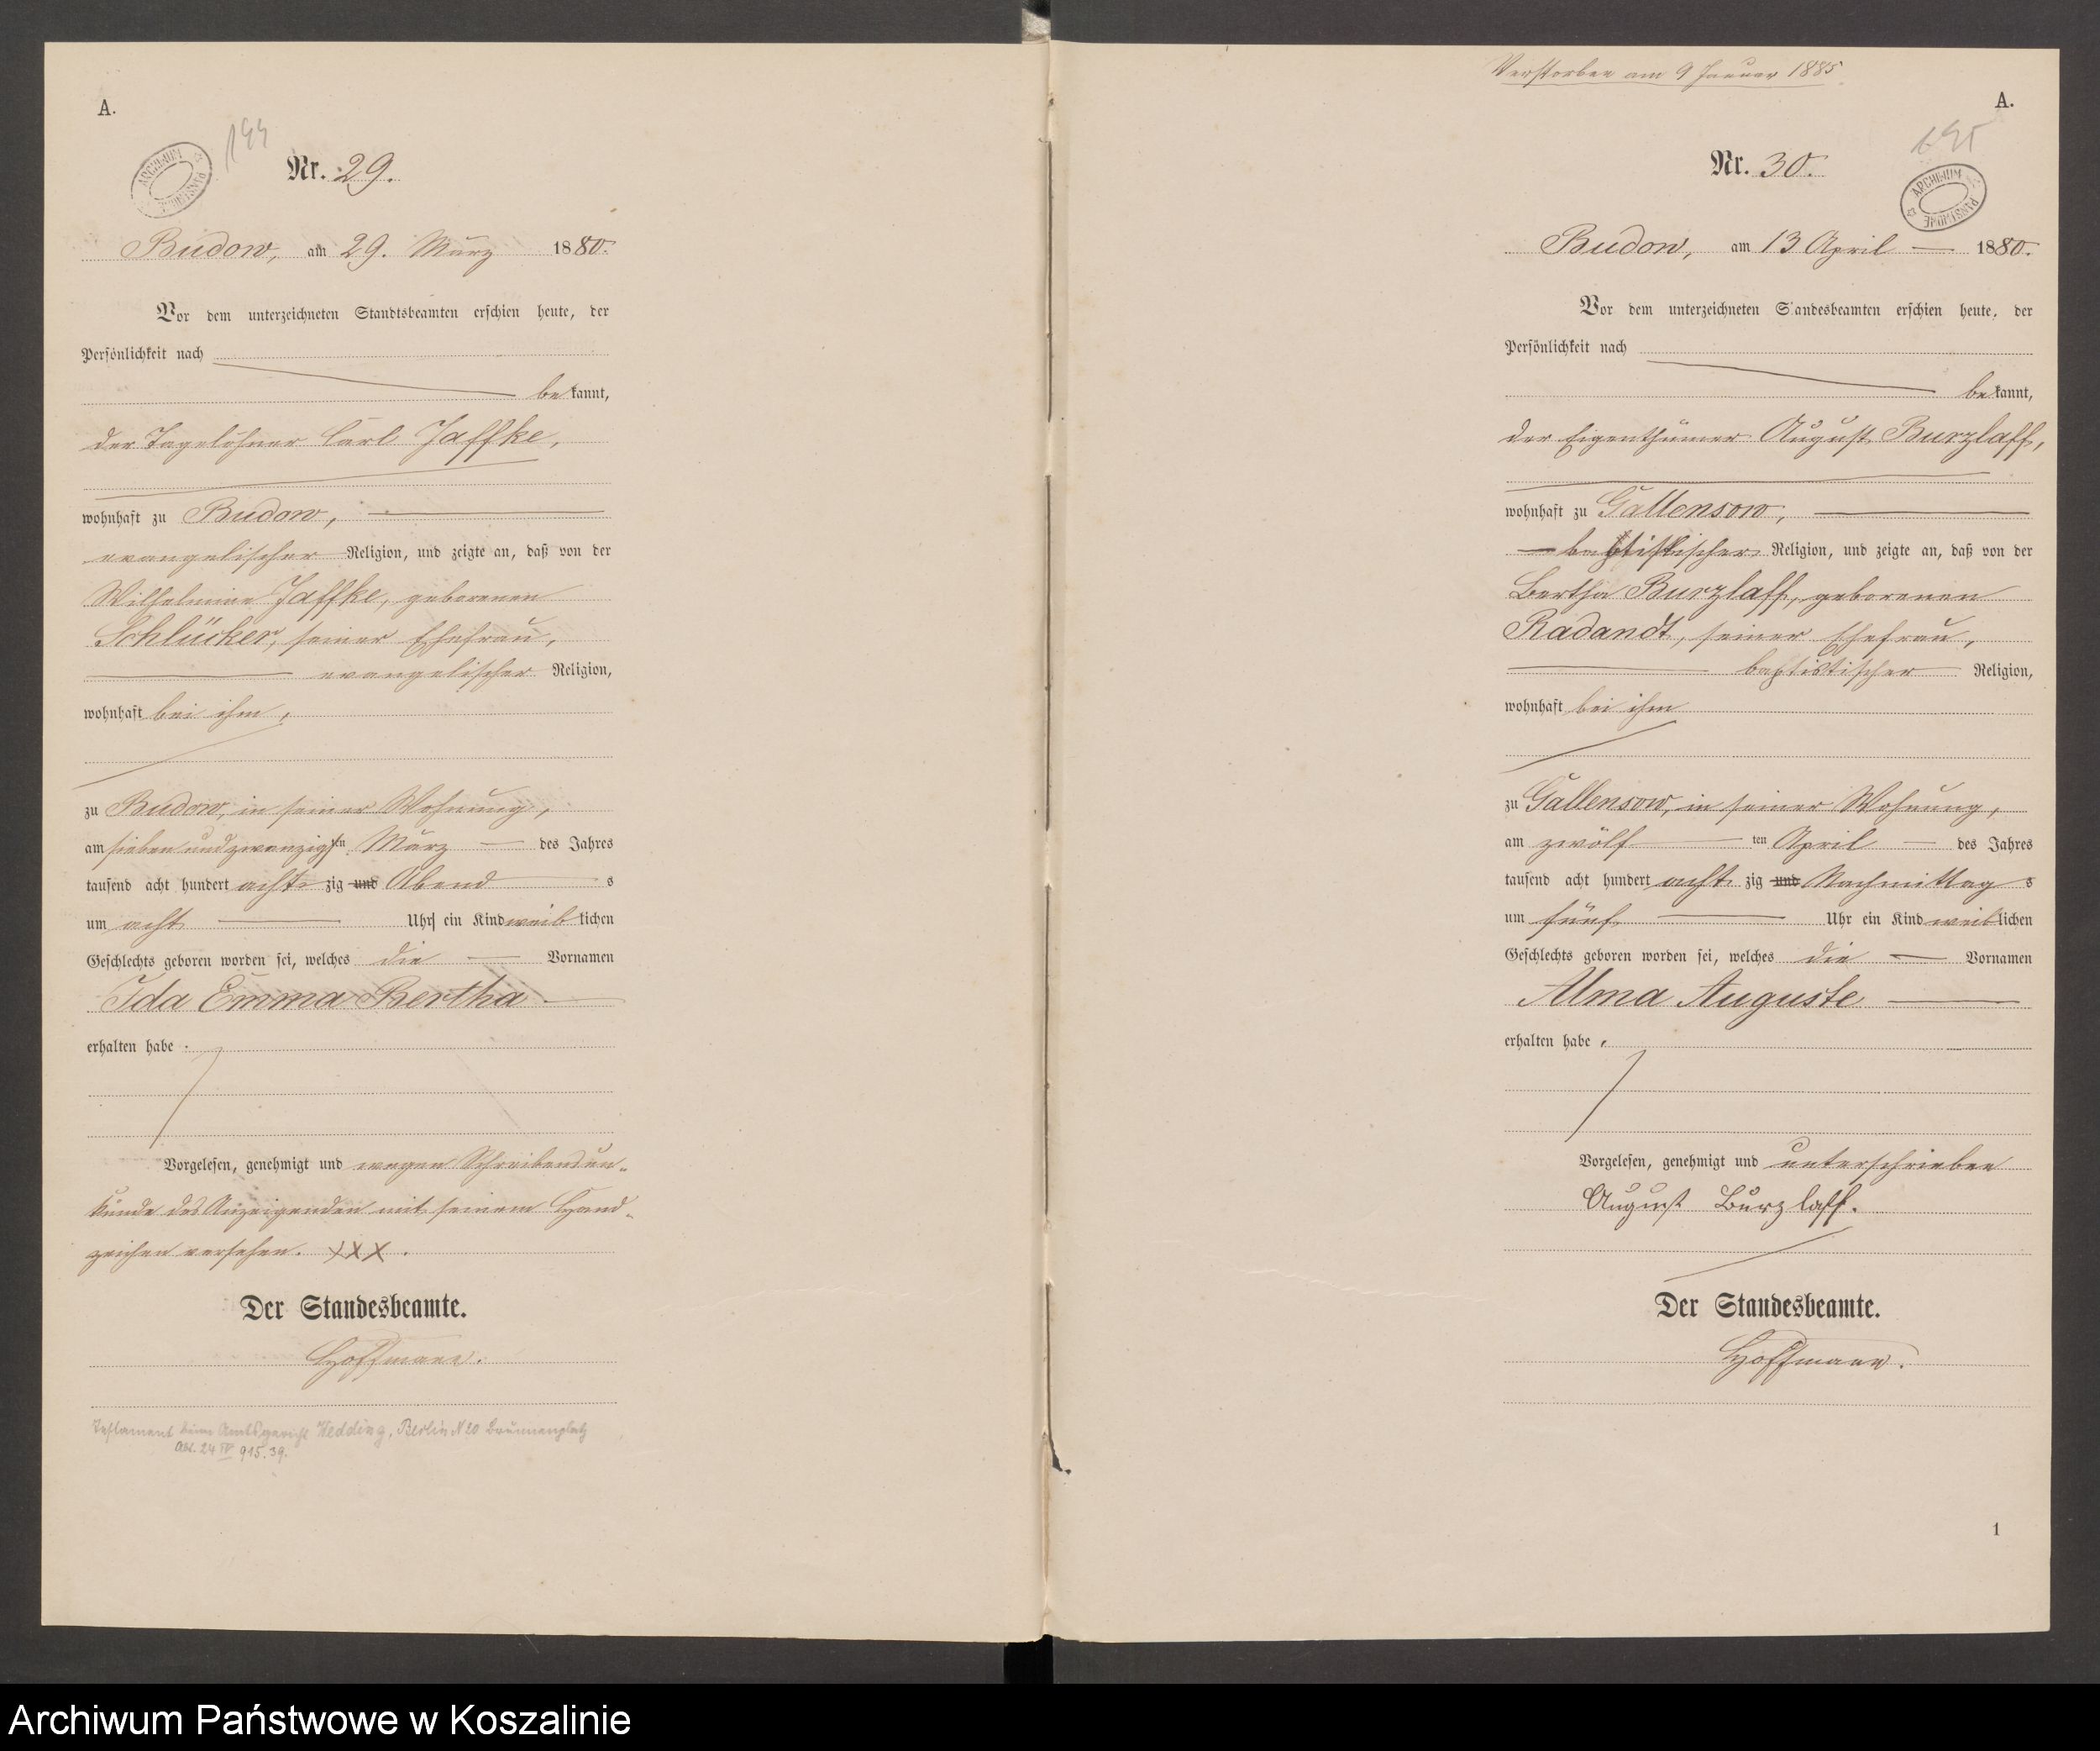 A.
144
ARCHIWUM PAŃSTWOWE
Nr. 29.
Budow, am 29. März 1880.
Vor dem unterzeichneten Standtsbeamten erschien heute, der
Persönlichkeit nach
bekannt,
der Tagelöhner Carl Jaffke,
wohnhaft zu Budow,
evangelischer Religion, und zeigte an, daß von der
Wilhelmine Jaffke, geborenen
Schlücker, seiner Ehefrau,
evangelischer Religion,
wohnhaft bei ihm,
zu Budow, in seiner Wohnung,
am sieben und zwanzigsten März des Jahres
tausend acht hundert achtzig und Abends
um acht Uhr ein Kind weiblichen
Geschlechts geboren worden sei, welches die Vornamen
Ida Emma Bertha
erhalten habe.
Vorgelesen, genehmigt und wegen Schreibensun-
kunde des Anzeigenden mit seinem Hand-
zeichen versehen. XXX.
Der Standesbeamte.
Hoffmann.
Testament beim Amtsgericht Wedding, Berlin N 20 Brunnenplatz
Abt. 24 IV 915.39.
Verstorben am 9 Januar 1885
A.
ARCHIWUM PAŃSTWOWE
Nr. 30.
Budow, am 13 April 1880.
Vor dem unterzeichneten Standesbeamten erschien heute, der
Persönlichkeit nach
bekannt,
der Eigenthümer August Burzlaff,
wohnhaft zu Gallensow,
baptistischer Religion, und zeigte an, daß von der
Bertha Burzlaff, geborenen
Radandt, seiner Ehefrau,
baptistischer Religion,
wohnhaft bei ihm
zu Gallensow, in seiner Wohnung,
am zwölften April des Jahres
tausend acht hundert achtzig und Nachmittags
um fünf Uhr ein Kind weiblichen
Geschlechts geboren worden sei, welches die Vornamen
Alma Auguste
erhalten habe,
Vorgelesen, genehmigt und unterschrieben
August Burzlaff.
Der Standesbeamte.
Hoffmann.
1
Archiwum Państwowe w Koszalinie